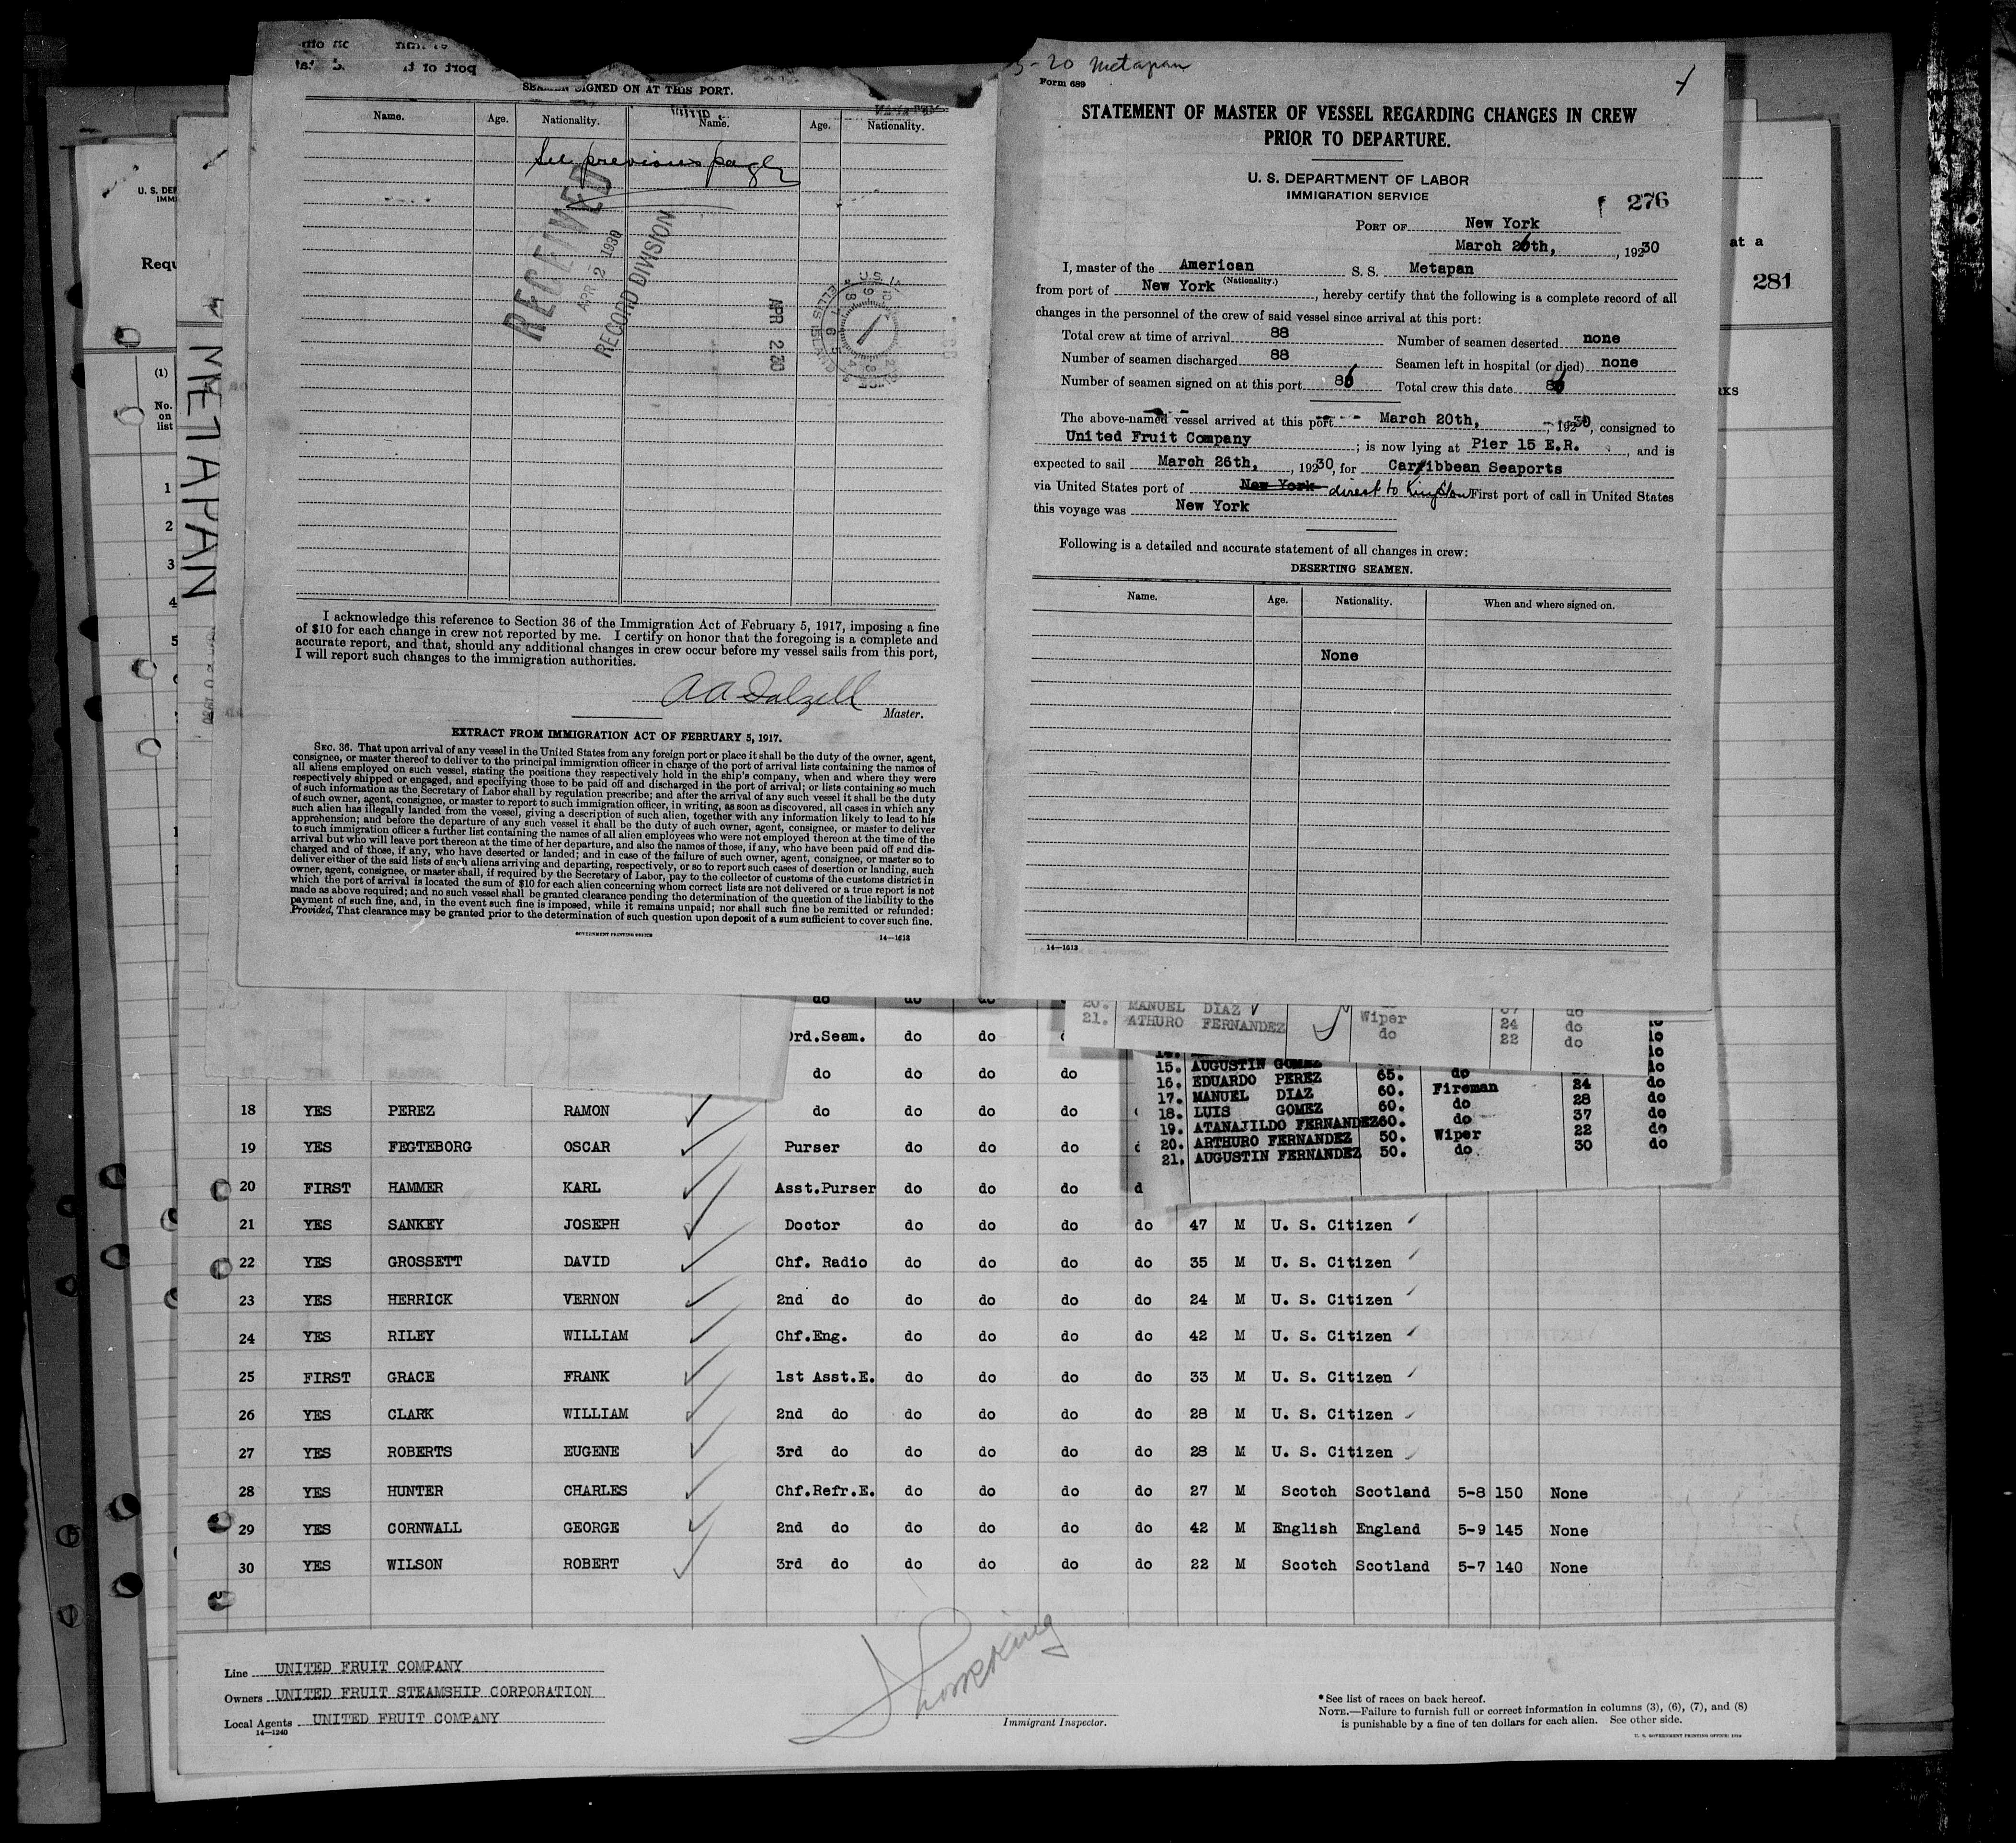 SEAMEN SIGNED ON AT THIS PORT.
Name. Age. Nationality. Name. Age. Nationality.
See previous page
RECEIVED
APR 2 1930
RECORD DIVISION
APR 2 30
I acknowledge this reference to Section 36 of the Immigration Act of February 5, 1917, imposing a fine
of $10 for each change in crew not reported by me. I certify on honor that the foregoing is a complete and
accurate report, and that, should any additional changes in crew occur before my vessel sails from this port,
I will report such changes to the immigration authorities.
A A Dalzell
Master.
EXTRACT FROM IMMIGRATION ACT OF FEBRUARY 5, 1917.
SEC. 36. That upon arrival of any vessel in the United States from any foreign port or place it shall be the duty of the owner, agent,
consignee, or master thereof to deliver to the principal immigration officer in charge of the port of arrival lists containing the names of
all aliens employed on such vessel, stating the positions they respectively hold in the ship's company, when and where they were
respectively shipped or engaged, and specifying those to be paid off and discharged in the port of arrival; or lists containing so much
of such information as the Secretary of Labor shall by regulation prescribe; and after the arrival of any such vessel it shall be the duty
of such owner, agent, consignee, or master to report to such immigration officer, in writing, as soon as discovered, all cases in which any
such alien has illegally landed from the vessel, giving a description of such alien, together with any information likely to lead to his
apprehension; and before the departure of any such vessel it shall be the duty of such owner, agent, consignee, or master to deliver
to such immigration officer a further list containing the names of all alien employees who were not employed thereon at the time of the
arrival but who will leave port thereon at the time of her departure, and also the names of those, if any, who have been paid off and dis-
charged and of those, if any, who have deserted or landed; and in case of the failure of such owner, agent, consignee, or master so to
deliver either of the said lists of such aliens arriving and departing, respectively, or so to report such cases of desertion or landing, such
owner, agent, consignee, or master shall, if required by the Secretary of Labor, pay to the collector of customs of the customs district in
which the port of arrival is located the sum of $10 for each alien concerning whom correct lists are not delivered or a true report is not
made as above required; and no such vessel shall be granted clearance pending the determination of the question of the liability to the
payment of such fine, and, in the event such fine is imposed, while it remains unpaid; nor shall such fine be remitted or refunded:
Provided, That clearance may be granted prior to the determination of such question upon deposit of a sum sufficient to cover such fine.
GOVERNMENT PRINTING OFFICE 14—1613
3-20 Metapan
Form 689
STATEMENT OF MASTER OF VESSEL REGARDING CHANGES IN CREW
PRIOR TO DEPARTURE.
U. S. DEPARTMENT OF LABOR
IMMIGRATION SERVICE
276
PORT OF New York
March 26th, , 1930
I, master of the American S. S. Metapan
(Nationality.)
from port of New York, hereby certify that the following is a complete record of all
changes in the personnel of the crew of said vessel since arrival at this port:
Total crew at time of arrival 88 Number of seamen deserted none
Number of seamen discharged 88 Seamen left in hospital (or died) none
Number of seamen signed on at this port 86 Total crew this date 86
The above-named vessel arrived at this port March 20th, , 1930, consigned to
United Fruit Company; is now lying at Pier 15 E.R., and is
expected to sail March 26th, , 1930, for Carribbean Seaports
via United States port of New York direct to Kingston First port of call in United States
this voyage was New York
Following is a detailed and accurate statement of all changes in crew:
DESERTING SEAMEN.
Name. Age. Nationality. When and where signed on.
None
14—1613
at a
281
U. S. DE
IMM
Requ
(1)
No.
on
list
1
2
3
4
5
METAPAN
20. MANUEL DIAZ
21. ATHURO FERNANDEZ Wiper 24 do
do 22 do
15. AUGUSTIN GOMEZ
16. EDUARDO PEREZ 65. do 24 do
17. MANUEL DIAZ 60. Fireman 28 do
18. LUIS GOMEZ 60. do 37 do
19. ATANAJILDO FERNANDEZ 60. do 22 do
20. ARTHURO FERNANDEZ 50. Wiper 30 do
21. AUGUSTIN FERNANDEZ 50. do
do do do
Ord.Seam. do do
do do do do
18 YES PEREZ RAMON do do do do
19 YES FEGTEBORG OSCAR Purser do do do
20 FIRST HAMMER KARL Asst.Purser do do do
21 YES SANKEY JOSEPH Doctor do do do do 47 M U. S. Citizen
22 YES GROSSETT DAVID Chf. Radio do do do do 35 M U. S. Citizen
23 YES HERRICK VERNON 2nd do do do do do 24 M U. S. Citizen
24 YES RILEY WILLIAM Chf.Eng. do do do do 42 M U. S. Citizen
25 FIRST GRACE FRANK 1st Asst.E. do do do do 33 M U. S. Citizen
26 YES CLARK WILLIAM 2nd do do do do do 28 M U. S. Citizen
27 YES ROBERTS EUGENE 3rd do do do do do 28 M U. S. Citizen
28 YES HUNTER CHARLES Chf.Refr.E. do do do do 27 M Scotch Scotland 5-8 150 None
29 YES CORNWALL GEORGE 2nd do do do do do 42 M English England 5-9 145 None
30 YES WILSON ROBERT 3rd do do do do do 22 M Scotch Scotland 5-7 140 None
Line UNITED FRUIT COMPANY
Owners UNITED FRUIT STEAMSHIP CORPORATION
Local Agents UNITED FRUIT COMPANY
14—1240
Immigrant Inspector.
*See list of races on back hereof.
NOTE.—Failure to furnish full or correct information in columns (3), (6), (7), and (8)
is punishable by a fine of ten dollars for each alien. See other side.